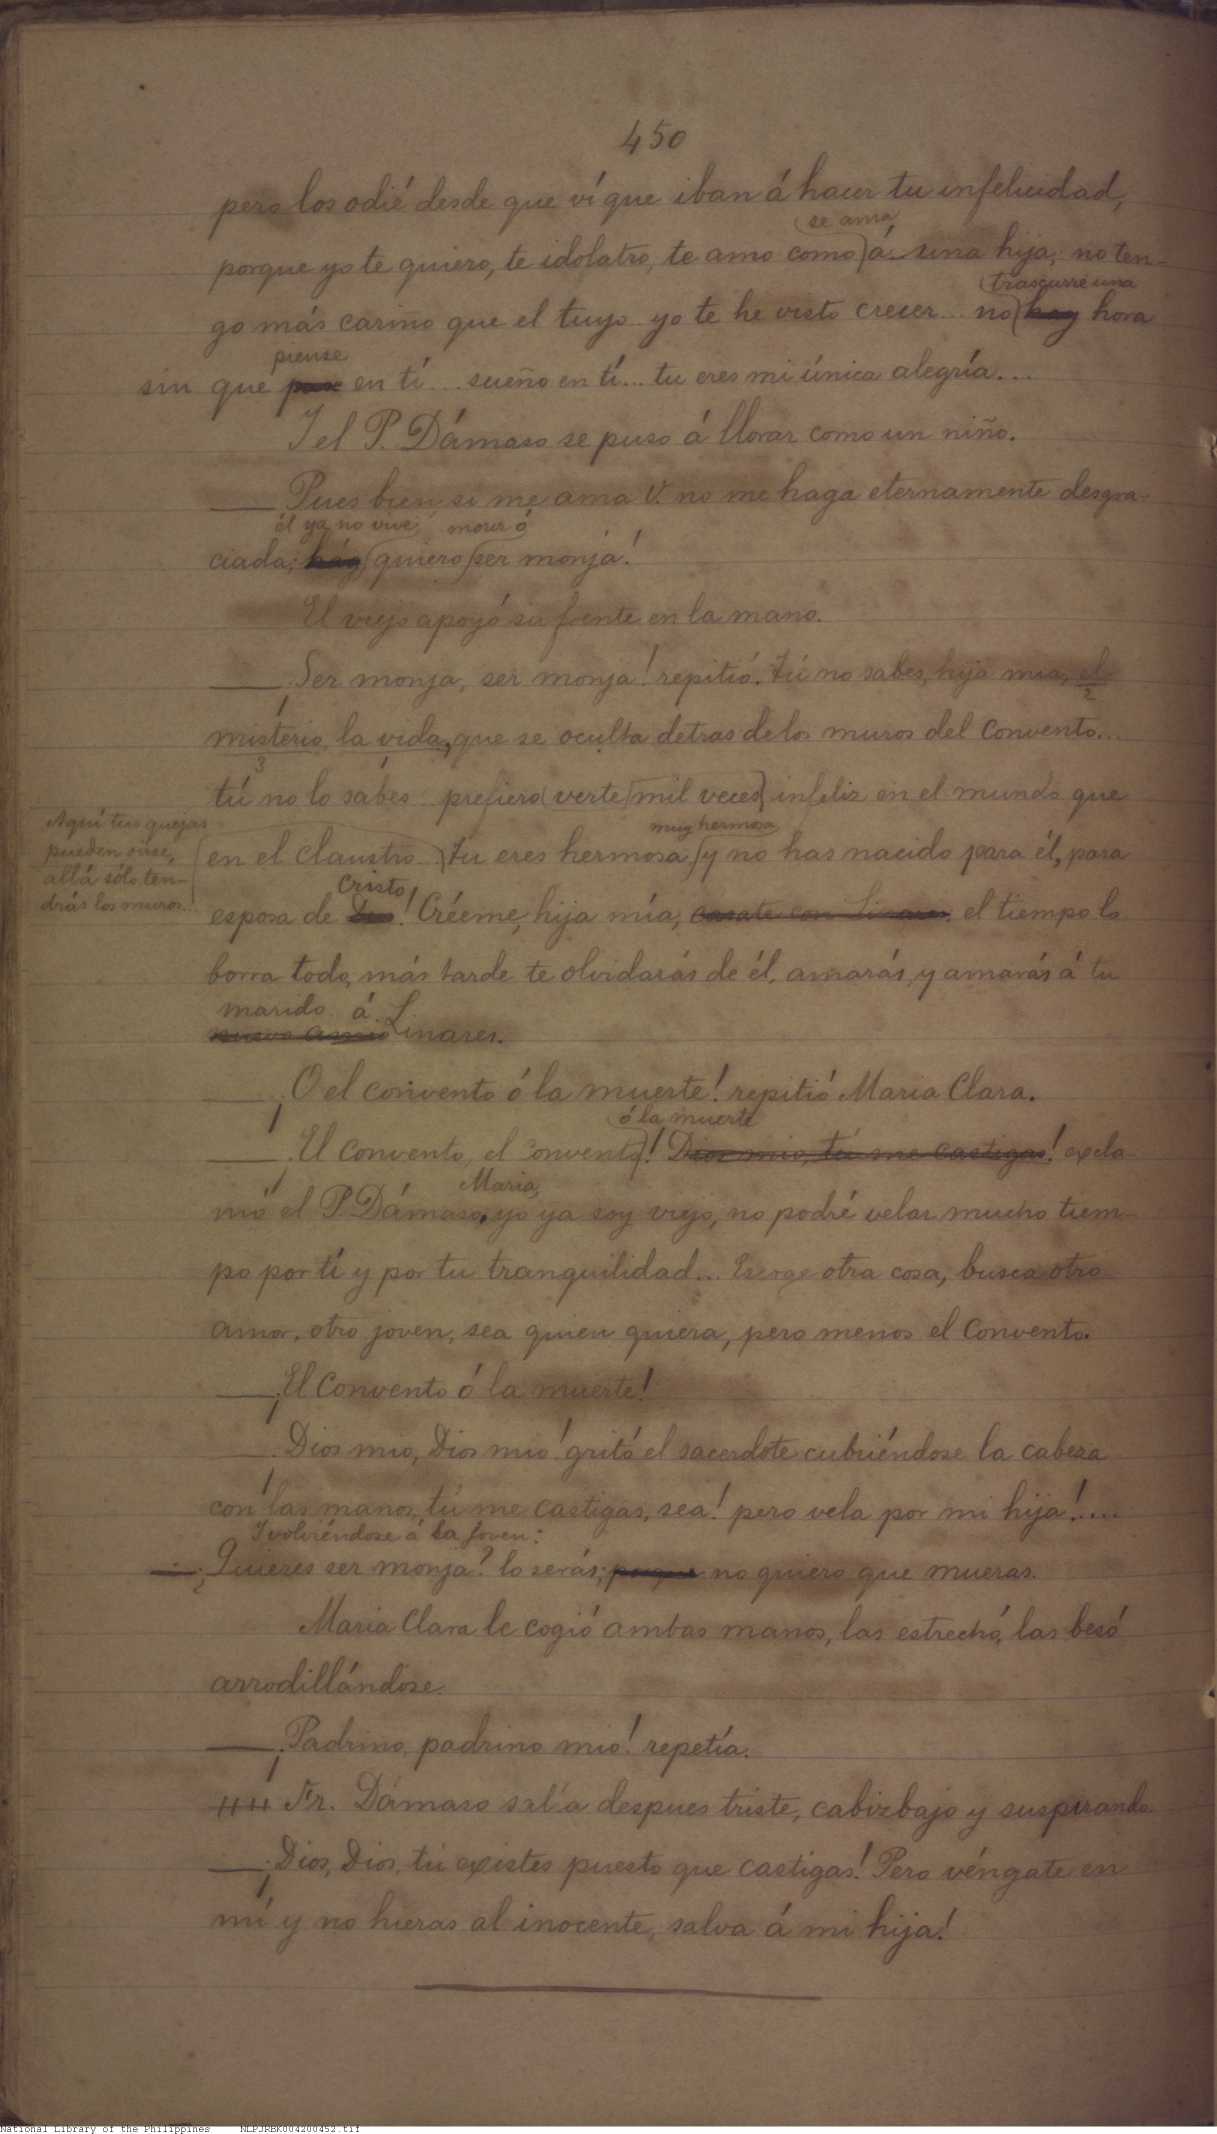 450
pero los odié desde que ví que iban á hacer tu infelicidad,
se ama
porque yo te quiero, te idolatro, te amo como á una hija; no ten-
trascurre una
go más cariño que el tuyo yo te he visto crecer... no hay hora
piense
sin que en tí... sueño en tí... tu eres mi única alegría...
Y el P. Dámaso se puso á llorar como un niño.
— Pues bien si me ama V. no me haga eternamente desgra-
él ya no vive; morir ó
ciada; quiero ser monja!
El viejo apoyó su frente en la mano.
— ¡Ser monja, ser monja! repitió. Tú no sabes, hija mia, el
2
mistério, la vida, que se oculta detras de los muros del Convento...
3
tú no lo sabes prefiero verte mil veces infeliz en el mundo que
Aquí tus quejas
pueden oirse,
allá sólo ten-
drás los muros...
muy hermosa
en el claustro. Tu eres hermosa y no has nacido para él, para
Cristo
esposa de Dios! Créeme, hija mía, casate con Linares, el tiempo lo
borra todo, más tarde te olvidarás de él, amarás, y amarás á tu
marido á
nuevo Linares.
— ¡O el convento ó la muerte! repitió Maria Clara.
ó la muerte
— ¡El Convento, el Convento! Dios mio, tú me castigas! excla
Maria,
mó el P. Dámaso, yo ya soy viejo, no podré velar mucho tiem-
po por tí y por tu tranquilidad... Escoge otra cosa, busca otro
amor, otro joven, sea quien quiera, pero menos el Convento.
— ¡El Convento ó la muerte!
— ¡Dios mio, Dios mio! gritó el sacerdote cubriéndose la cabeza
con las manos, tú me castigas, sea! pero vela por mi hija!....
Y volviéndose á la joven:
— ¿Quieres ser monja? lo serás; porque no quiero que mueras.
Maria Clara le cogió ambas manos, las estrechó, las besó
arrodillándose.
— ¡Padrino, padrino mio! repetía.
Fr. Dámaso salía despues triste, cabizbajo y suspirando.
— ¡Dios, Dios, tú existes puesto que castigas! Pero véngate en
mí y no hieras al inocente, salva á mi hija!
National Library of the Philippines NLPJRBK004200452.tif